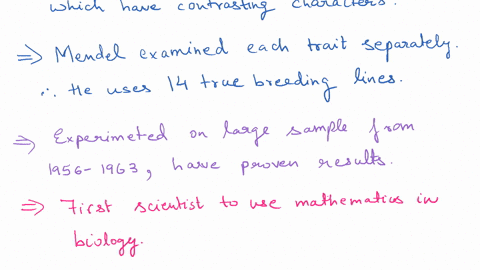 which have contrasting characters.
⇒ Mendel examined each trait separately.
∴ He uses 14 true breeding lines.
⇒ Experimeted on large sample from
1956-1963, have proven results.
⇒ First scientist to use mathematics in
biology.